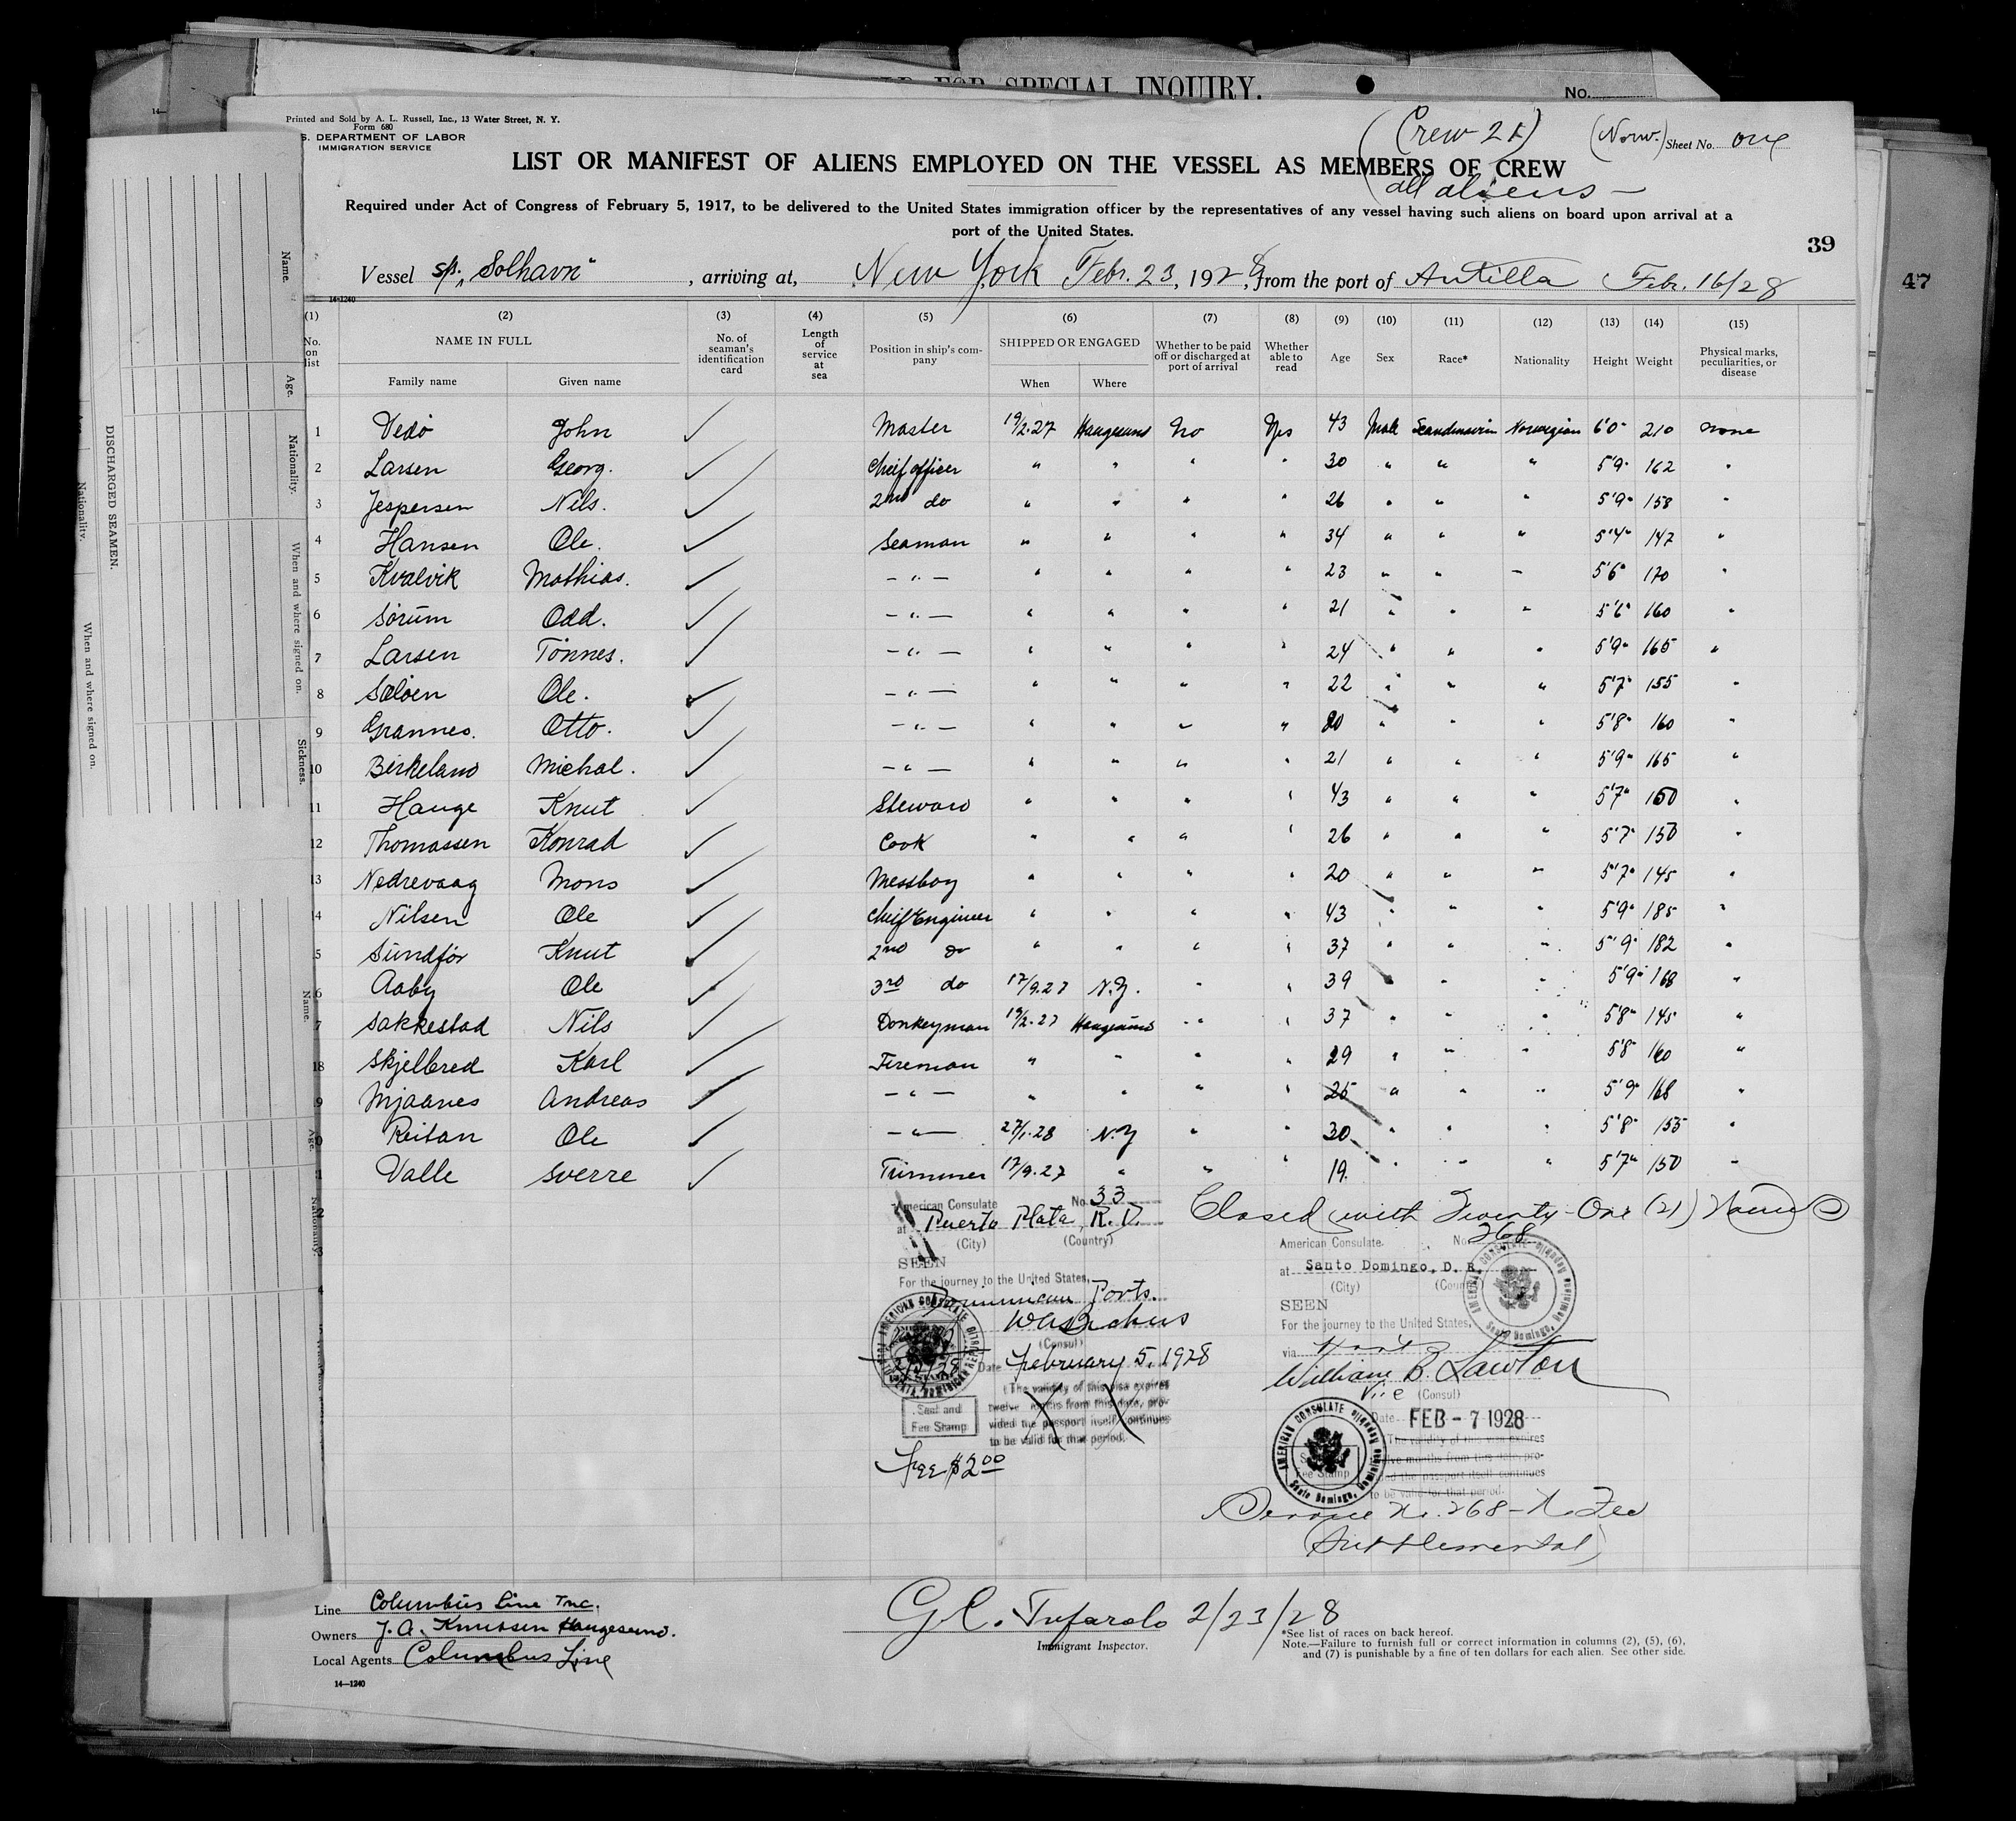 FOR SPECIAL INQUIRY.
No.
Printed and Sold by A. L. Russell, Inc., 13 Water Street, N. Y.
Form 680
S. DEPARTMENT OF LABOR
IMMIGRATION SERVICE
(Crew 21) (Norw.) Sheet No. one
LIST OR MANIFEST OF ALIENS EMPLOYED ON THE VESSEL AS MEMBERS OF CREW
all aliens —
Required under Act of Congress of February 5, 1917, to be delivered to the United States immigration officer by the representatives of any vessel having such aliens on board upon arrival at a
port of the United States.
39
47
Vessel s/s. "Solhavn" , arriving at, New York Febr. 23, 1928, from the port of Antilla Febr. 16/28
14-1240
(1) (2) (3) (4) (5) (6) (7) (8) (9) (10) (11) (12) (13) (14) (15)
No. on list NAME IN FULL No. of seaman's identification card Length of service at sea Position in ship's company SHIPPED OR ENGAGED Whether to be paid off or discharged at port of arrival Whether able to read Age Sex Race* Nationality Height Weight Physical marks, peculiarities, or disease
Family name Given name When Where
1 Vedö John ✓ Master 19/2.27 Haugesund No Yes 43 Male Scandinavin Norwegian 6'0" 210 none
2 Larsen Georg. ✓ Cheif officer " " " " 30 " " " 5'9" 162 "
3 Jespersen Nils. ✓ 2nd do " " " " 26 " " " 5'9" 158 "
4 Hansen Ole. ✓ Seaman " " " " 34 " " " 5'4" 147 "
5 Kvalvik Mathias. ✓ — " — " " " " 23 " " " 5'6" 170 "
6 Sörum Odd. ✓ — " — " " " " 21 " " " 5'6" 160 "
7 Larsen Tönnes. ✓ — " — " " " " 24 " " " 5'9" 165 "
8 Salöen Ole. ✓ — " — " " " " 22 " " " 5'7" 155 "
9 Grannes. Otto. ✓ — " — " " " " 20 " " " 5'8" 160 "
10 Birkeland Michal. ✓ — " — " " " " 21 " " " 5'9" 165 "
11 Hauge Knut ✓ Steward " " " " 43 " " " 5'7" 160 "
12 Thomassen Konrad ✓ Cook " " " " 26 " " " 5'7" 150 "
13 Nedrevaag Mons ✓ Messboy " " " " 20 " " " 5'7" 145 "
4 Nilsen Ole ✓ Cheif Engineer " " " " 43 " " " 5'9" 185 "
5 Sundför Knut ✓ 2nd do " " " " 37 " " " 5'9" 182 "
6 Aaby Ole ✓ 3rd do 17/9.27 N.Y. " " 39 " " " 5'9" 168 "
7 Sakkestad Nils ✓ Donkeyman 19/2.27 Haugesund " " 37 " " " 5'8" 145 "
18 Skjelbred Karl ✓ Fireman " " " " 29 " " " 5'8" 160 "
9 Mjaanes Andreas ✓ — " — " " " " 25 " " " 5'9" 168 "
0 Reitan Ole ✓ — " — 27/1.28 N.Y " " 30 " " " 5'8" 155 "
1 Valle Sverre ✓ Trimmer 17/9.27 " " " 19. " " " 5'7" 150 "
Closed with Twenty-One (21) Names
American Consulate No. 33
at Puerto Plata, R. D.
(City) (Country)
SEEN
For the journey to the United States,
Dominican Ports.
(Consul)
Date February 5, 1928
(The validity of this visa expires
twelve months from this date, pro-
vided the passport itself continues
to be valid for that period.
Seal and
Fee Stamp
Fee $2.00
American Consulate No. 268
at Santo Domingo, D. R.
(City) (Country)
SEEN
For the journey to the United States,
via
William B. Lawton
Vice (Consul)
Date FEB - 7 1928
The validity of this visa expires
twelve months from this date, pro-
vided the passport itself continues
to be valid for that period.
AMERICAN CONSULATE
Santo Domingo, Dominican Republic
Service No. 268 - No Fee
(Supplemental)
Line Columbus Line Inc.
Owners J. A. Knudsen Haugesund.
Local Agents Columbus Line
14—1240
2/23/28
Immigrant Inspector.
*See list of races on back hereof.
Note.—Failure to furnish full or correct information in columns (2), (5), (6),
and (7) is punishable by a fine of ten dollars for each alien. See other side.
DISCHARGED SEAMEN.
Name.
Age.
Nationality.
When and where signed on.
Sickness.
Name.
Age.
Nationality.
Nationality.
When and where signed on.